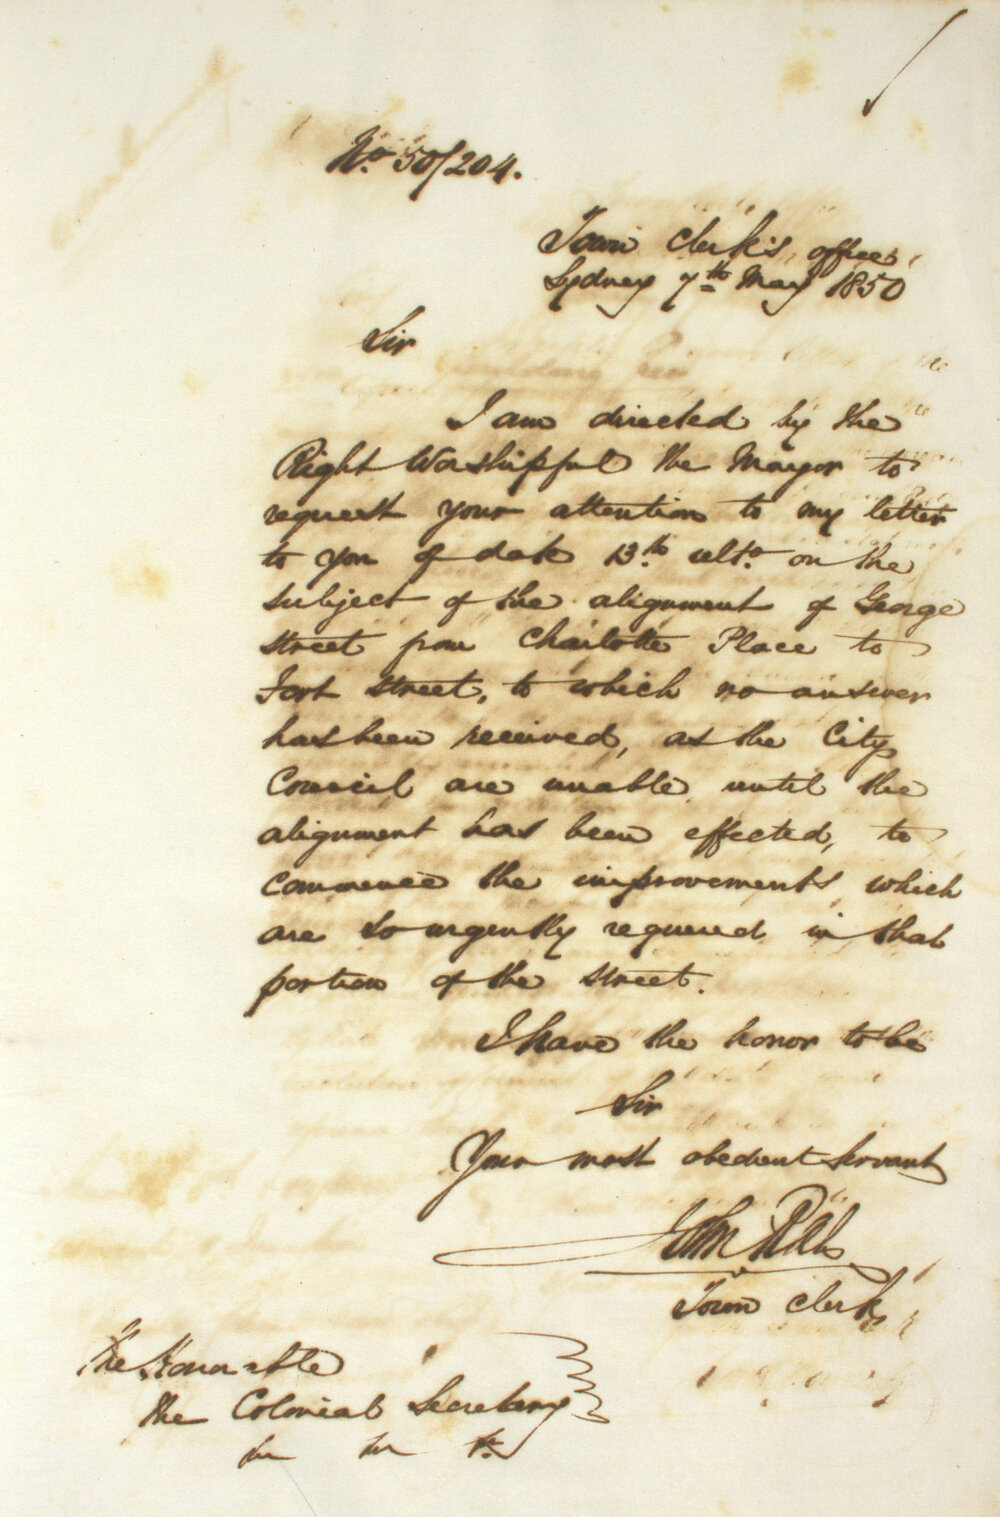 No. 50/204.
Town Clerk's office
Sydney 7th May 1850
Sir
I am directed by the
Right Worshipful the Mayor to
request your attention to my letter
to you of date 13th. ulto. on the
subject of the alignment of George
street from Charlotte Place to
Fort Street, to which no answer
has been received, as the City
Council are unable until the
alignment has been effected, to
commence the improvements which
are so urgently required in that
portion of the street.
I have the honor to be
Sir
Your most obedient servant
John
Town Clerk
The Honorable
the Colonial Secretary